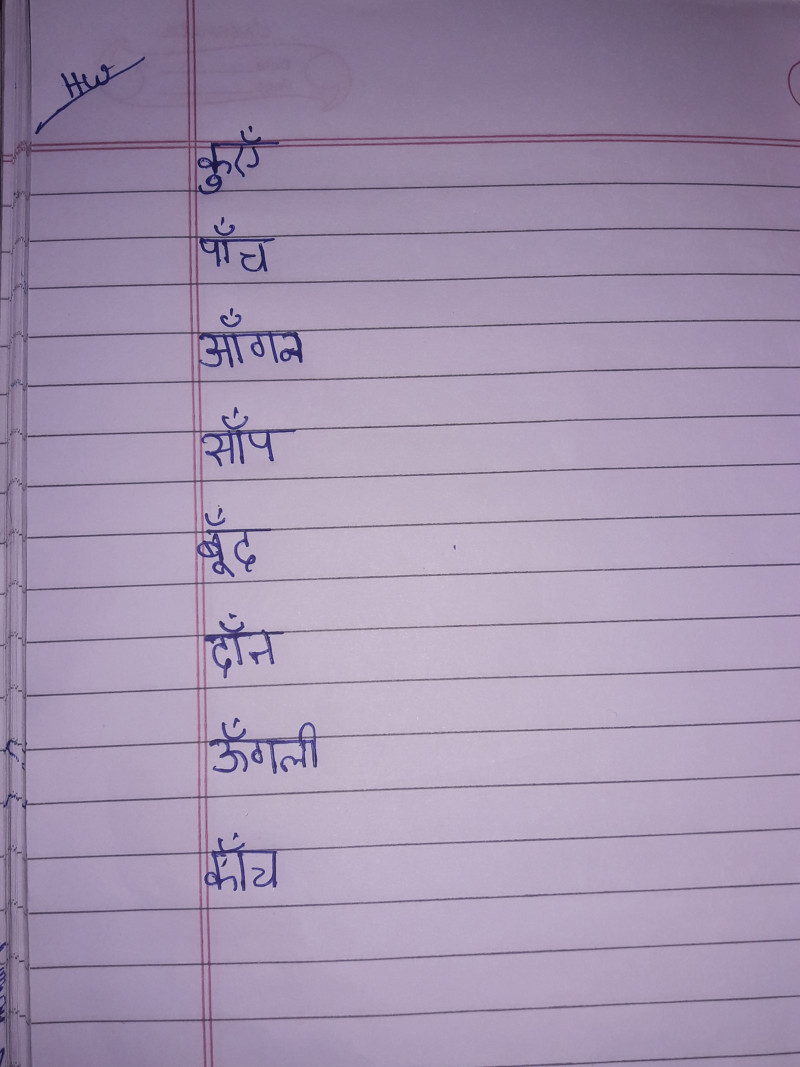 HW
कुएँ
पाँच
आँगन
साँप
बूँद
दाँत
ऊँगली
काँच